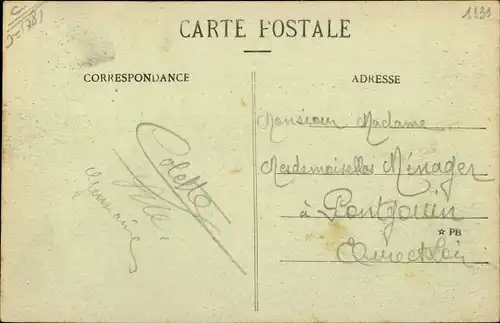 CARTE POSTALE
1131
CORRESPONDANCE
Colette
ADRESSE
Monsieur Madame
Mesdemoiselles Ménager
à Pontgouin
☆ PB
Eure et Loir